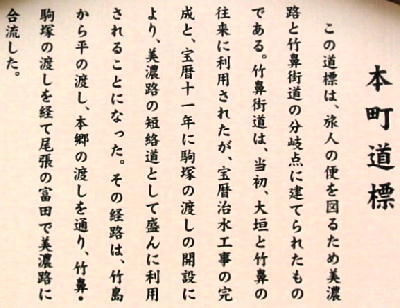 本町道標
この道標は、旅人の便を図るため美濃
路と竹鼻街道の分岐点に建てられたもの
である。竹鼻街道は、当初、大垣と竹鼻の
往来に利用されたが、宝暦治水工事の完
成と、宝暦十一年に駒塚の渡しの開設に
より、美濃路の短絡道として盛んに利用
されることになった。その経路は、竹島
から平の渡し、本郷の渡しを通り、竹鼻・
駒塚の渡しを経て尾張の富田で美濃路に
合流した。